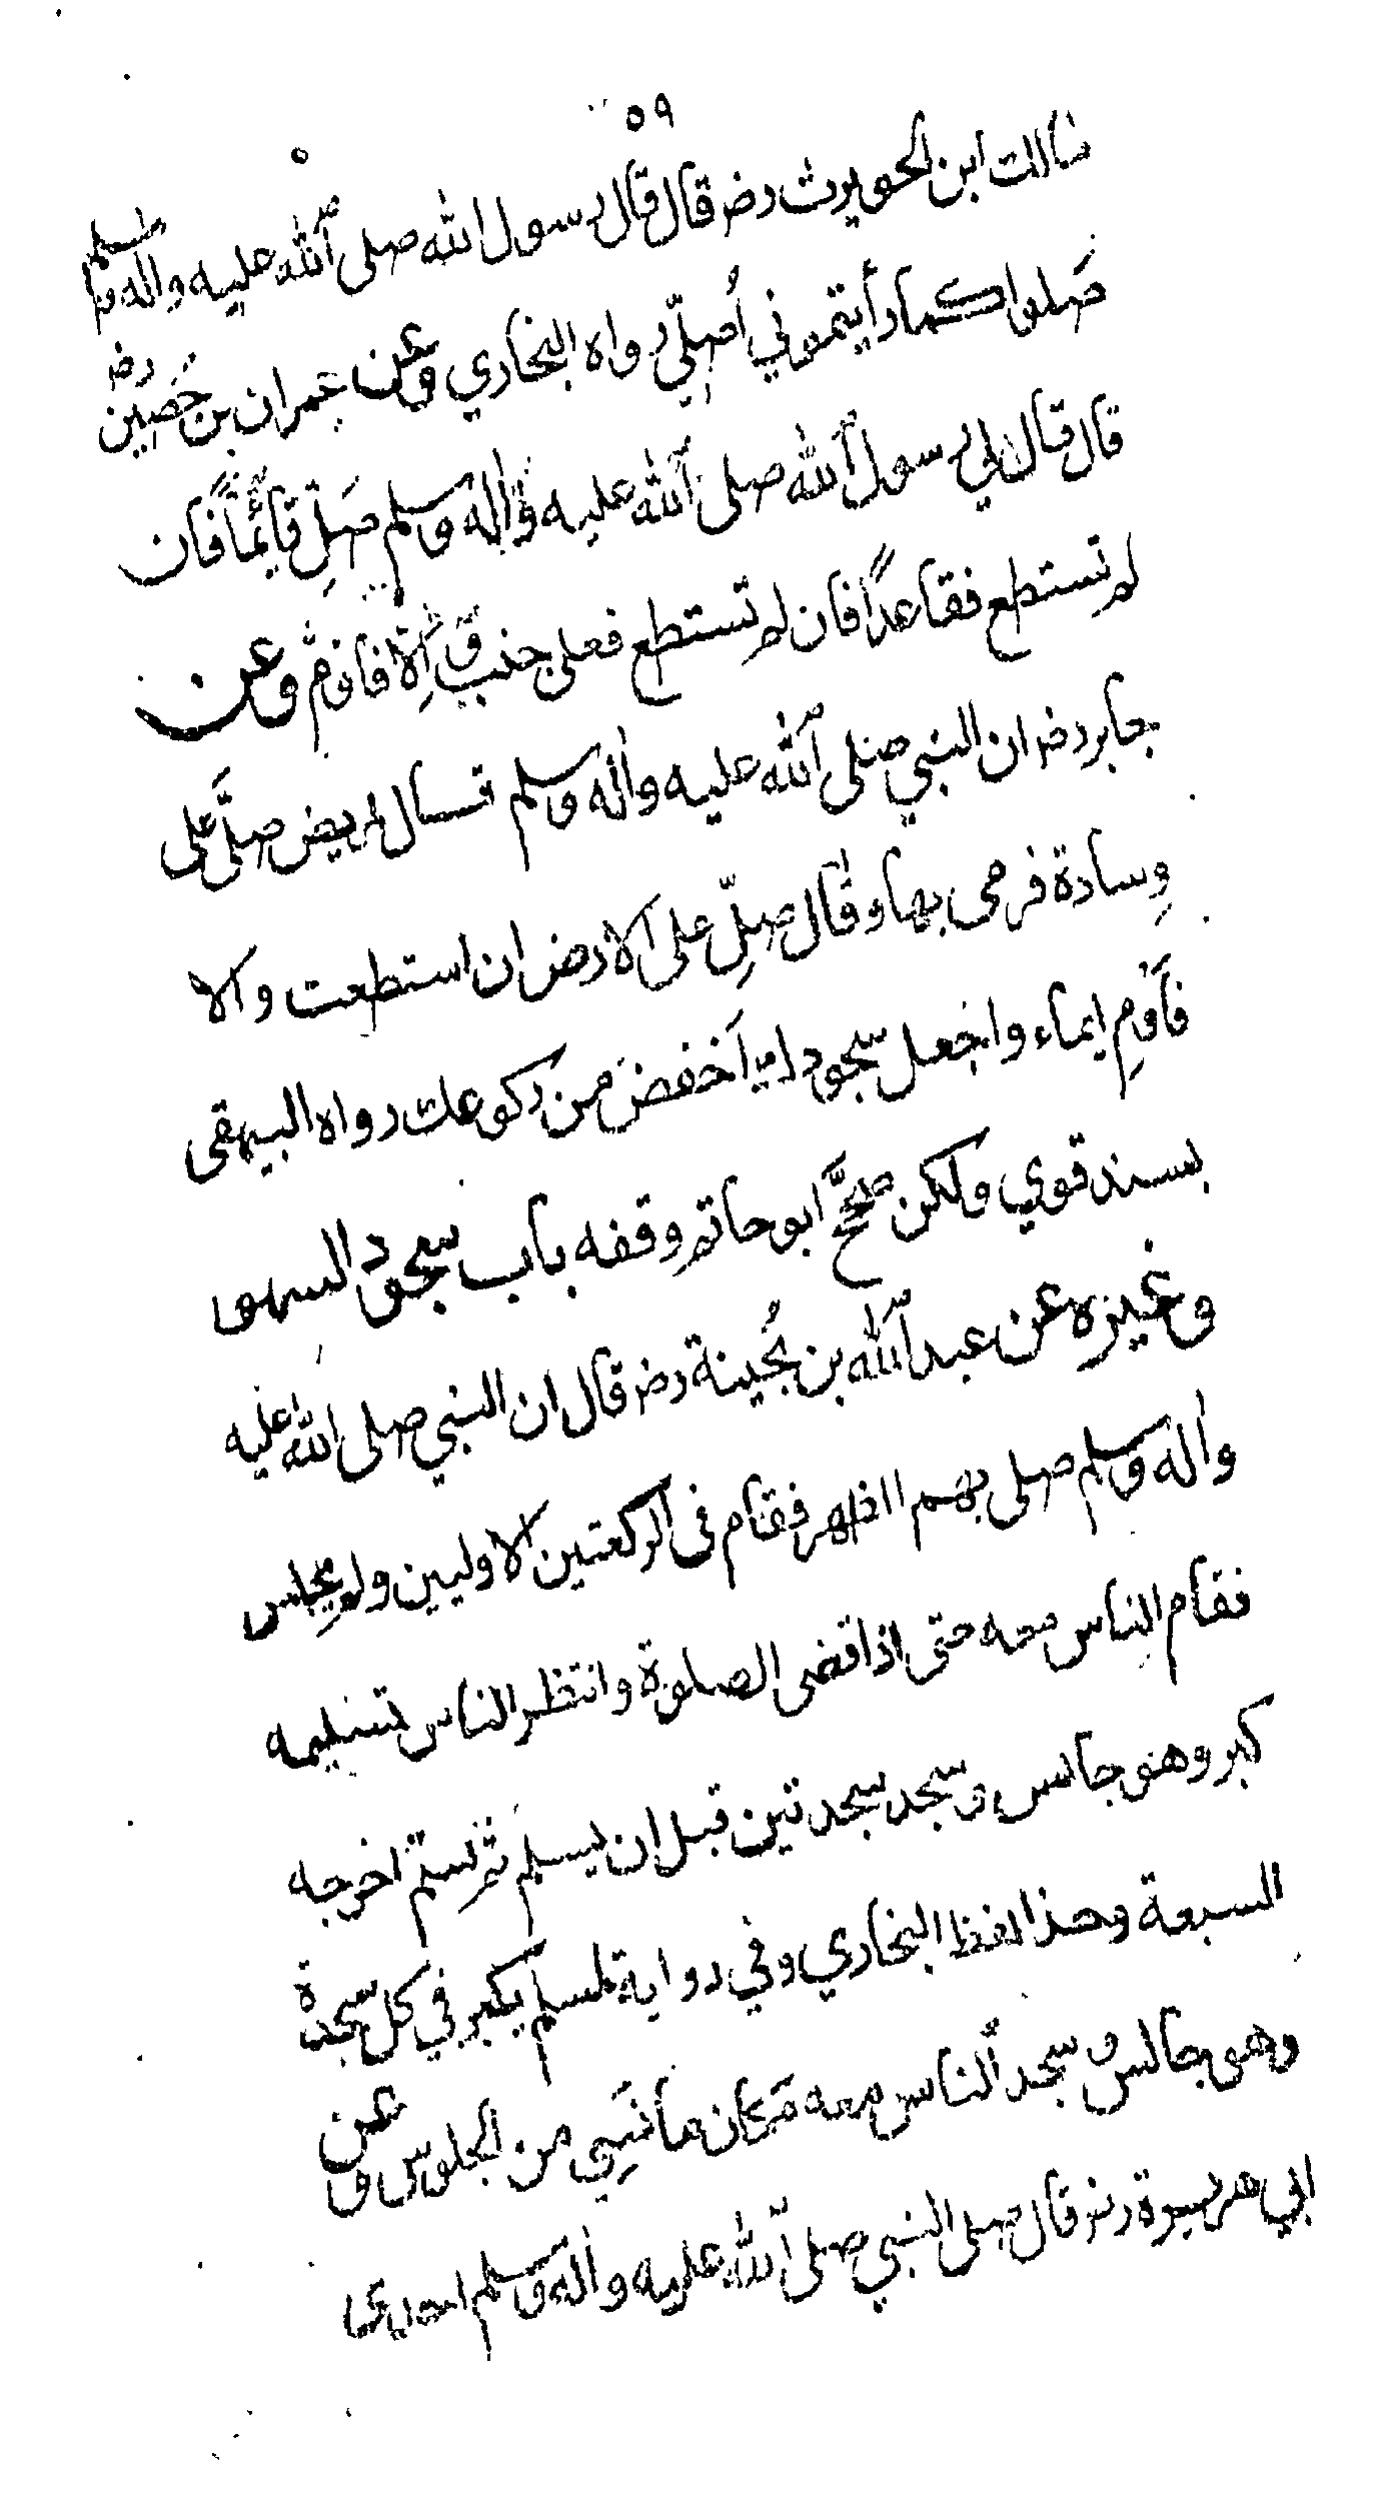 ٥٩
مالك ابن الحويرث رضـ قال قال رسول الله صلى الله عليه واله وسلم
صَلوا كما رأيتموني أُصلِّي رواه البخاري وعن عمران بن حُصَين رضـ
قال قال لي رسول الله صلى الله عليه واله وسلم صَلِ قائمًا فان
لم تستطع فقاعدًا فان لم تستطع فعلى جنب وَإِلا فاوم وعن
جابر رضـ ان النبي صلى الله عليه واله وسلم قال لمريض صلَّى على
وِسادة فرمى بها وقال صلِّ على الارض ان استطعت والا
فأَومِ ايماء واجعل سجودك اَخفضَ من ركوعك رواه البيهقى
بسند قوي ولكن صحَّح ابو حاتم وقفه باب سجود السهو
وغيره عن عبد الله بن بُحينة رضـ قال ان النبي صلى الله عليه
واله وسلم صلى بهم الظهر فقام فى الركعتين الاوليين ولم يجلس
فقام الناس معه حتى اذا قضى الصلوة وانتظر الناس تسليمه
كبر وهو جالس وسجد سجدتين قبل ان يسلم ثم سلم اخرجه
السبعة وهذا لفظ البخاري وفي رواية لمسلم يكبر في كل سجدة
وهو جالس وسجد الناس معه مَكان ما نَسِي من الجلوس وعن
ابي هريرة رضـ قال صلى النبي صلى الله عليه واله وسلم احدى